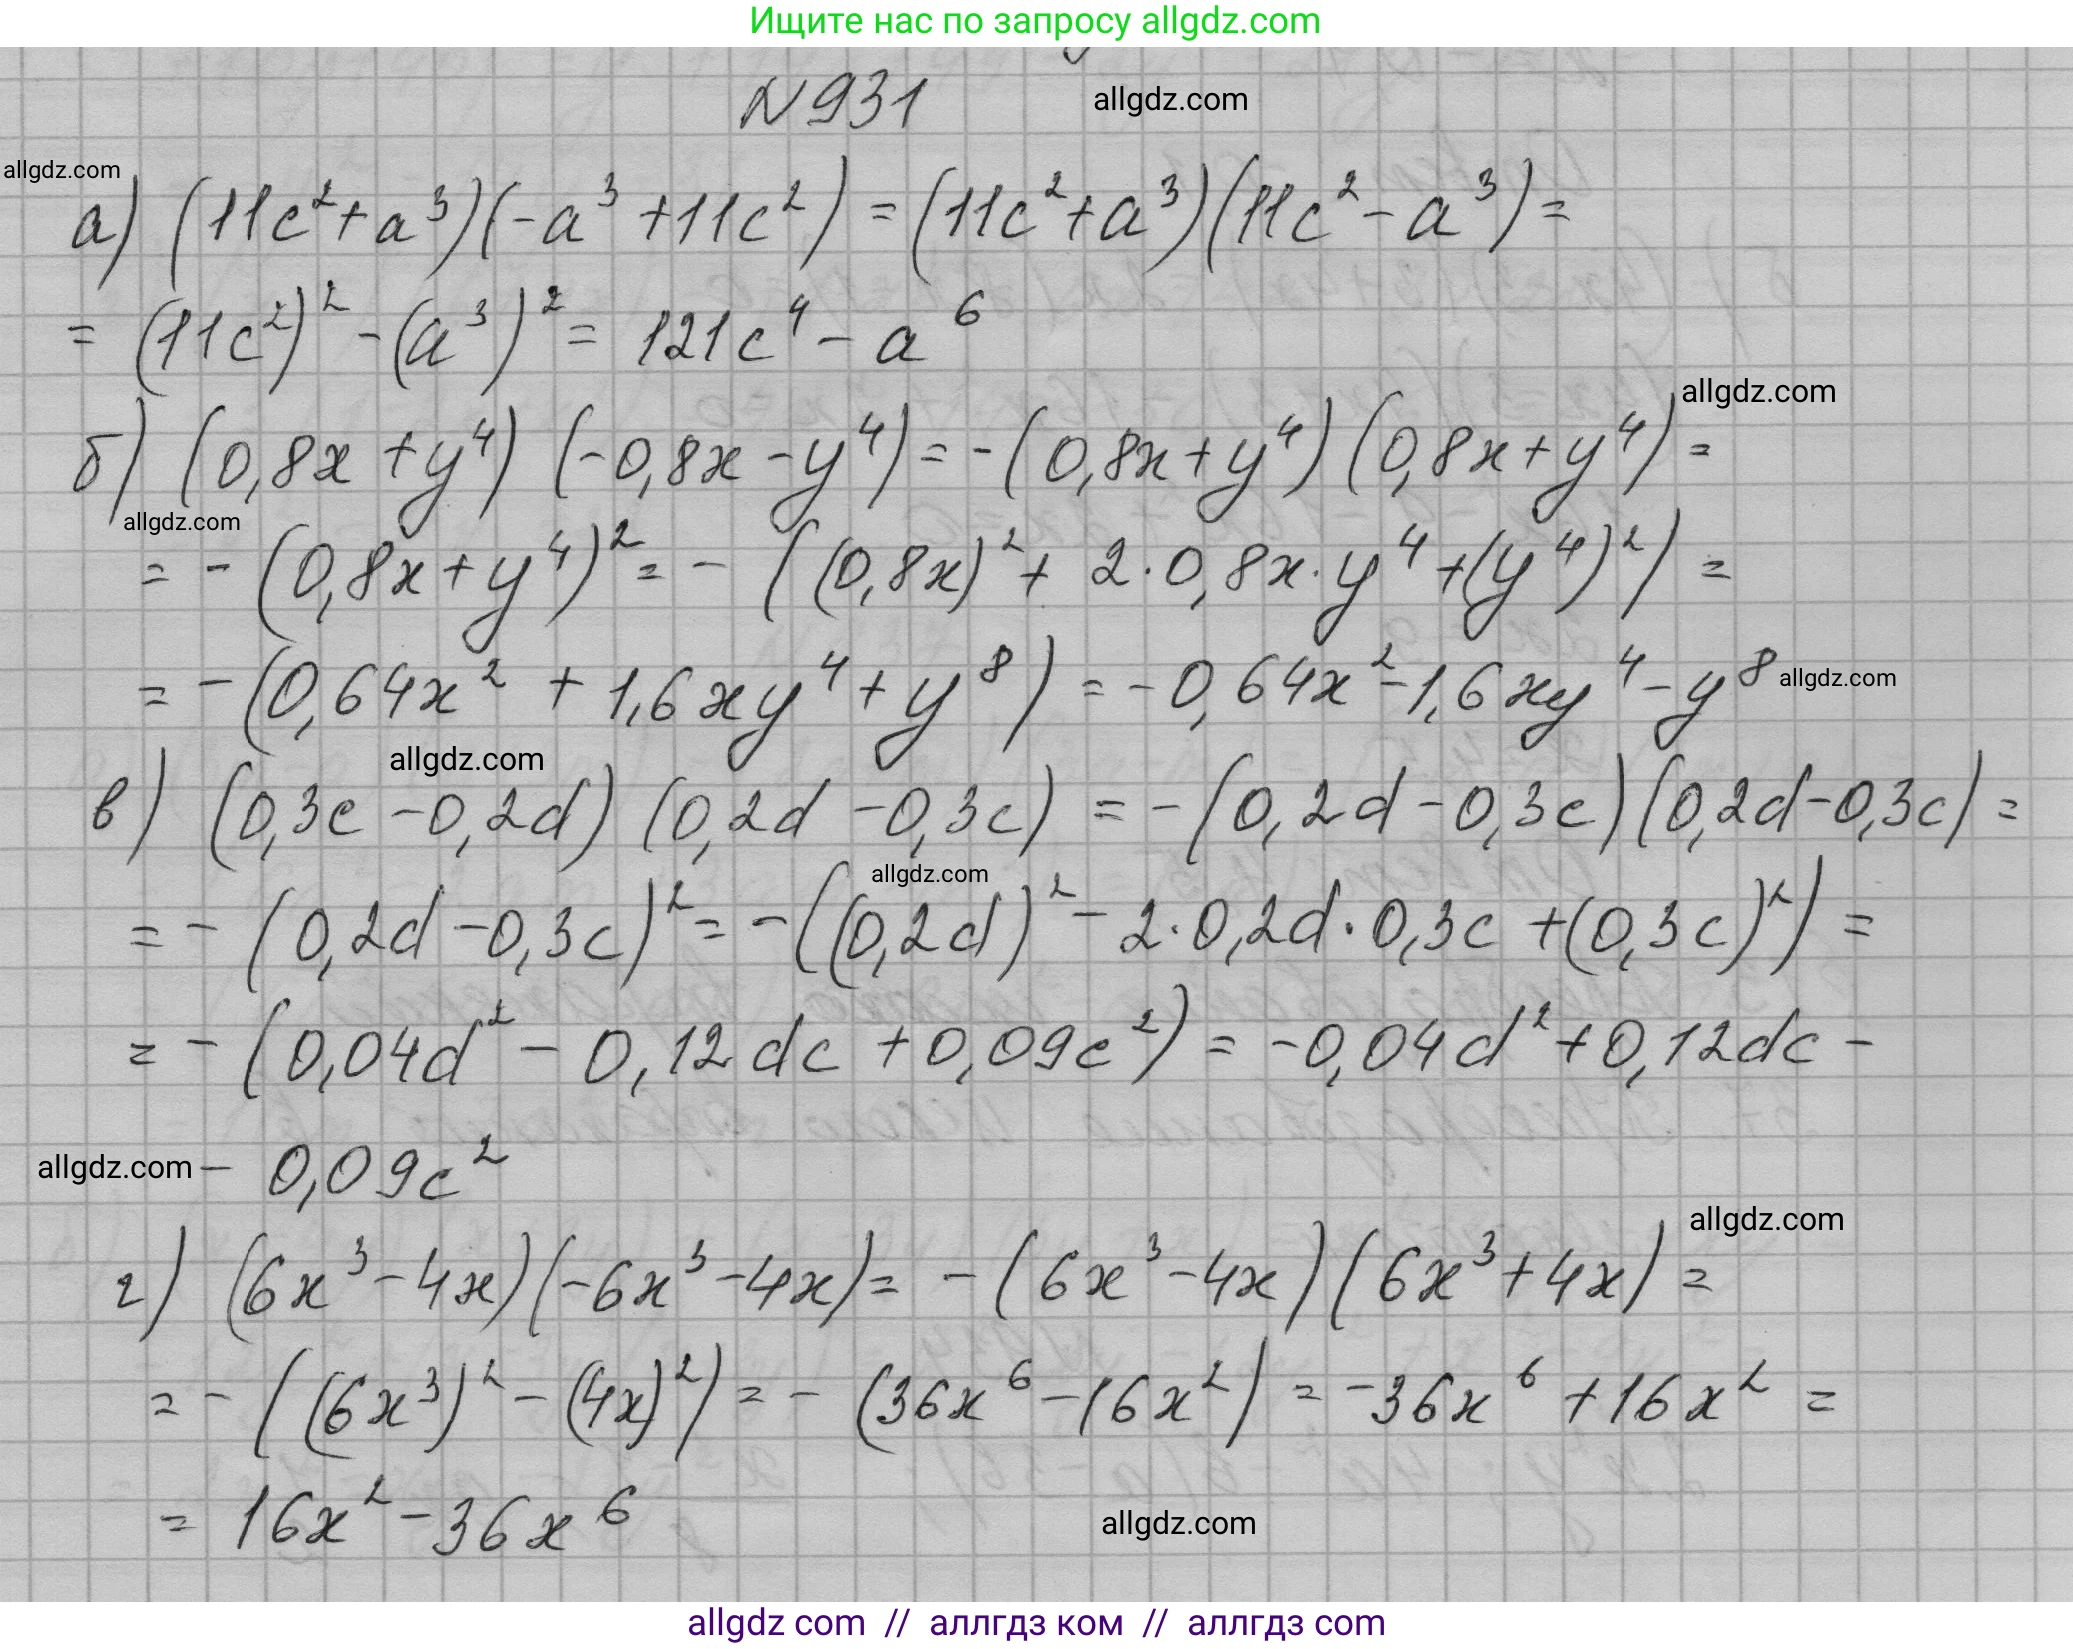 Ищите нас по запросу allgdz.com
N 931
allgdz.com
allgdz.com
а) (11c² + a³)(-a³ + 11c²) = (11c² + a³)(11c² - a³) =
= (11c²)² - (a³)² = 121c⁴ - a⁶
allgdz.com
б) (0,8x + y⁴) (-0,8x - y⁴) = -(0,8x + y⁴)(0,8x + y⁴) =
allgdz.com
= - (0,8x + y⁴)² = - ((0,8x)² + 2·0,8x·y⁴ + (y⁴)²) =
= - (0,64x² + 1,6xy⁴ + y⁸) = -0,64x² - 1,6xy⁴ - y⁸
allgdz.com
allgdz.com
в) (0,3c - 0,2d) (0,2d - 0,3c) = - (0,2d - 0,3c)(0,2d - 0,3c) =
allgdz.com
= - (0,2d - 0,3c)² = - ((0,2d)² - 2·0,2d·0,3c + (0,3c)²) =
= - (0,04d² - 0,12dc + 0,09c²) = -0,04d² + 0,12dc -
allgdz.com
- 0,09c²
allgdz.com
г) (6x³ - 4x)(-6x³ - 4x) = - (6x³ - 4x)(6x³ + 4x) =
= - ((6x³)² - (4x)²) = - (36x⁶ - 16x²) = -36x⁶ + 16x² =
= 16x² - 36x⁶
allgdz.com
allgdz com // аллгдз ком // аллгдз com